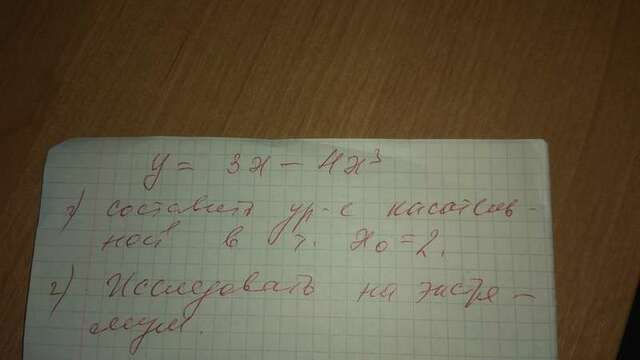 y = 3x - 4x³
1) составить ур-е касатель-
ной в т. x₀ = 2.
2) Исследовать на экстре-
мум.